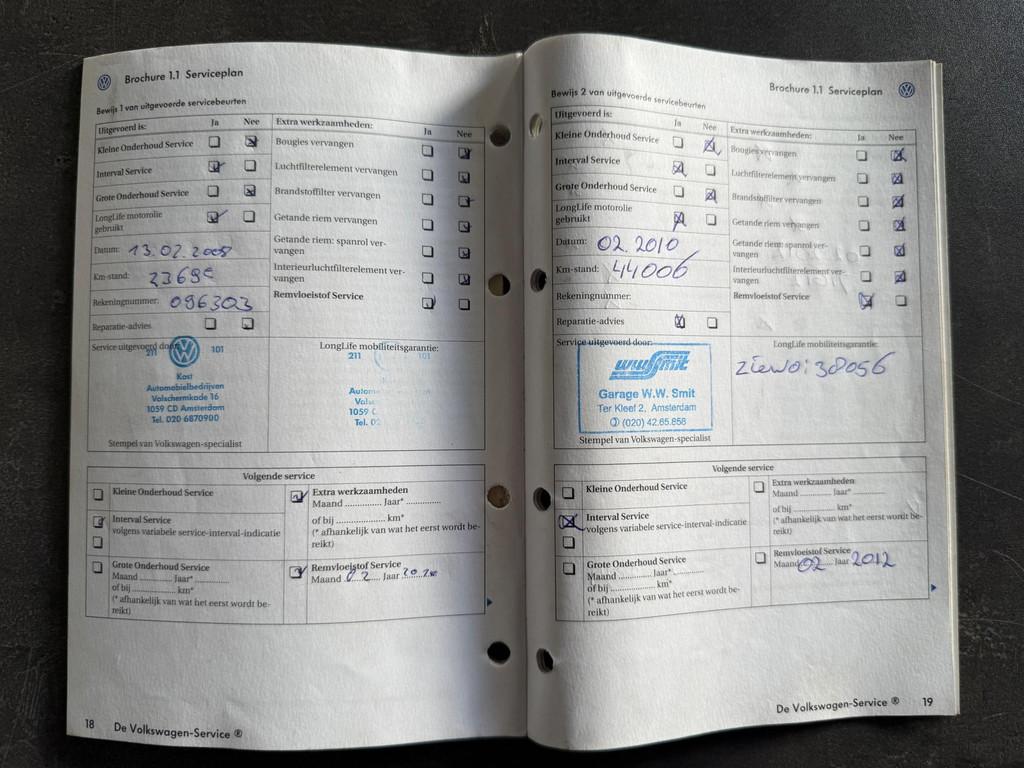 Brochure 1.1 Serviceplan
Bewijs 1 van uitgevoerde servicebeurten
Uitgevoerd is: Ja Nee
Kleine Onderhoud Service
Interval Service
Grote Onderhoud Service
LongLife motorolie
gebruikt
Datum: 13.02.2008
Km-stand:
Rekeningnummer: 096303
Reparatie-advies
Extra werkzaamheden: Ja Nee
Bougies vervangen
Luchtfilterelement vervangen
Brandstoffilter vervangen
Getande riem vervangen
Getande riem: spanrol ver-
vangen
Interieurluchtfilterelement ver-
vangen
Remvloeistof Service
Service uitgevoerd door:
211 101
Kost
Automobielbedrijven
Valschermkade 16
1059 CD Amsterdam
Tel. 020 6870900
Stempel van Volkswagen-specialist
LongLife mobiliteitsgarantie:
211 101
1059
Tel.
Volgende service
Kleine Onderhoud Service
Interval Service
volgens variabele service-interval-indicatie
Grote Onderhoud Service
Maand ............ Jaar* ............
of bij .................. km*
(* afhankelijk van wat het eerst wordt be-
reikt)
Extra werkzaamheden
Maand ............ Jaar* ............
of bij .................. km*
(* afhankelijk van wat het eerst wordt be-
reikt)
Remvloeistof Service
Maand 02 Jaar
18 De Volkswagen-Service ®
Brochure 1.1 Serviceplan
Bewijs 2 van uitgevoerde servicebeurten
Uitgevoerd is: Ja Nee
Kleine Onderhoud Service
Interval Service
Grote Onderhoud Service
LongLife motorolie
gebruikt
Datum: 02.2010
Km-stand: 44006
Rekeningnummer:
Reparatie-advies
Extra werkzaamheden: Ja Nee
Bougies vervangen
Luchtfilterelement vervangen
Brandstoffilter vervangen
Getande riem vervangen
Getande riem: spanrol ver-
vangen
Interieurluchtfilterelement ver-
vangen
Remvloeistof Service
Service uitgevoerd door:
wwSmit
Garage W.W. Smit
Ter Kleef 2, Amsterdam
(020) 42.65.856
Stempel van Volkswagen-specialist
LongLife mobiliteitsgarantie:
38056
Volgende service
Kleine Onderhoud Service
Interval Service
volgens variabele service-interval-indicatie
Grote Onderhoud Service
Maand ............ Jaar* ............
of bij .................. km*
(* afhankelijk van wat het eerst wordt be-
reikt)
Extra werkzaamheden
Maand ............ Jaar* ............
of bij .................. km*
(* afhankelijk van wat het eerst wordt be-
reikt)
Remvloeistof Service
Maand 02 Jaar 2012
De Volkswagen-Service ® 19